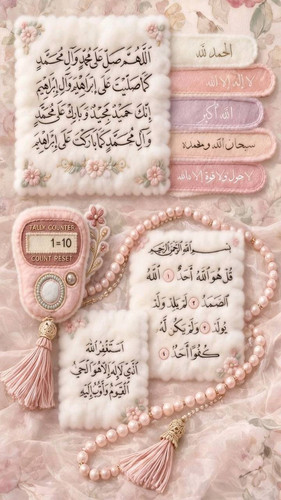 اللَّهُمَّ صَلِّ عَلَى مُحَمَّدٍ وَآلِ مُحَمَّدٍ
كَمَا صَلَّيْتَ عَلَى إِبْرَاهِيْمَ وَآلِ إِبْرَاهِيْمَ
إِنَّكَ حَمِيْدٌ مَجِيْدٌ وَبَارِكْ عَلَى مُحَمَّدٍ
وَآلِ مُحَمَّدٍ كَمَا بَارَكْتَ عَلَى إِبْرَاهِيْمَ
الحمد لله
لا إله إلا الله
الله أكبر
سبحان الله وبحمده
لا حول ولا قوة إلا بالله
TALLY COUNTER
1=10
COUNT RESET
بِسْمِ اللهِ الرَّحْمٰنِ الرَّحِيْمِ
قُلْ هُوَ اللهُ أَحَدٌ ١ اللهُ
الصَّمَدُ ٢ لَمْ يَلِدْ وَلَمْ
يُولَدْ ٣ وَلَمْ يَكُنْ لَهُ
كُفُوًا أَحَدٌ ٤
أَسْتَغْفِرُ اللهَ
الَّذِي لَا إِلٰهَ إِلَّا هُوَ الْحَيُّ
الْقَيُّوْمُ وَأَتُوْبُ إِلَيْهِ